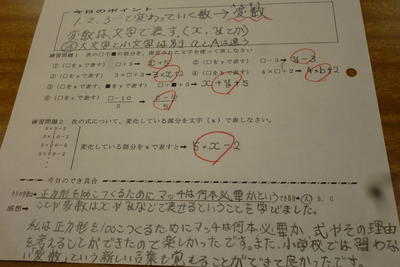 今日のポイント
1.2.3…と変わっていく数→変数
変数は文字で表す(x, yとか)
大文字と小文字は別 aとAは違う
練習問題1 次の□や■の部分を、指定された文字を使って表しなさい。
①(□をxで表す) □+5 → x+5
□-3 → y-3
3×□+2 → 3×x+2
4×□+2
(□をxで表す、■をyで表す) □+■+5 → x+y+5
(□をxで表す) □-10/5
練習問題2 次の式について、変化している部分を文字(x)で表しなさい。
5×1-2
5×2-2
5×3-2
変化している部分をxで表すと → 5×x-2
今日のでき具合
正方形を100こつくるためにマッチは何本必要かという
ことや変数はxやyなどで表せるということを学びました。
感想→
私は正方形を100こつくるためにマッチは何本必要か、式やその理由
を考えることができたので楽しかったです。また、小学校では習わな
い「変数」という新しい言葉も覚えることができて良かったです。